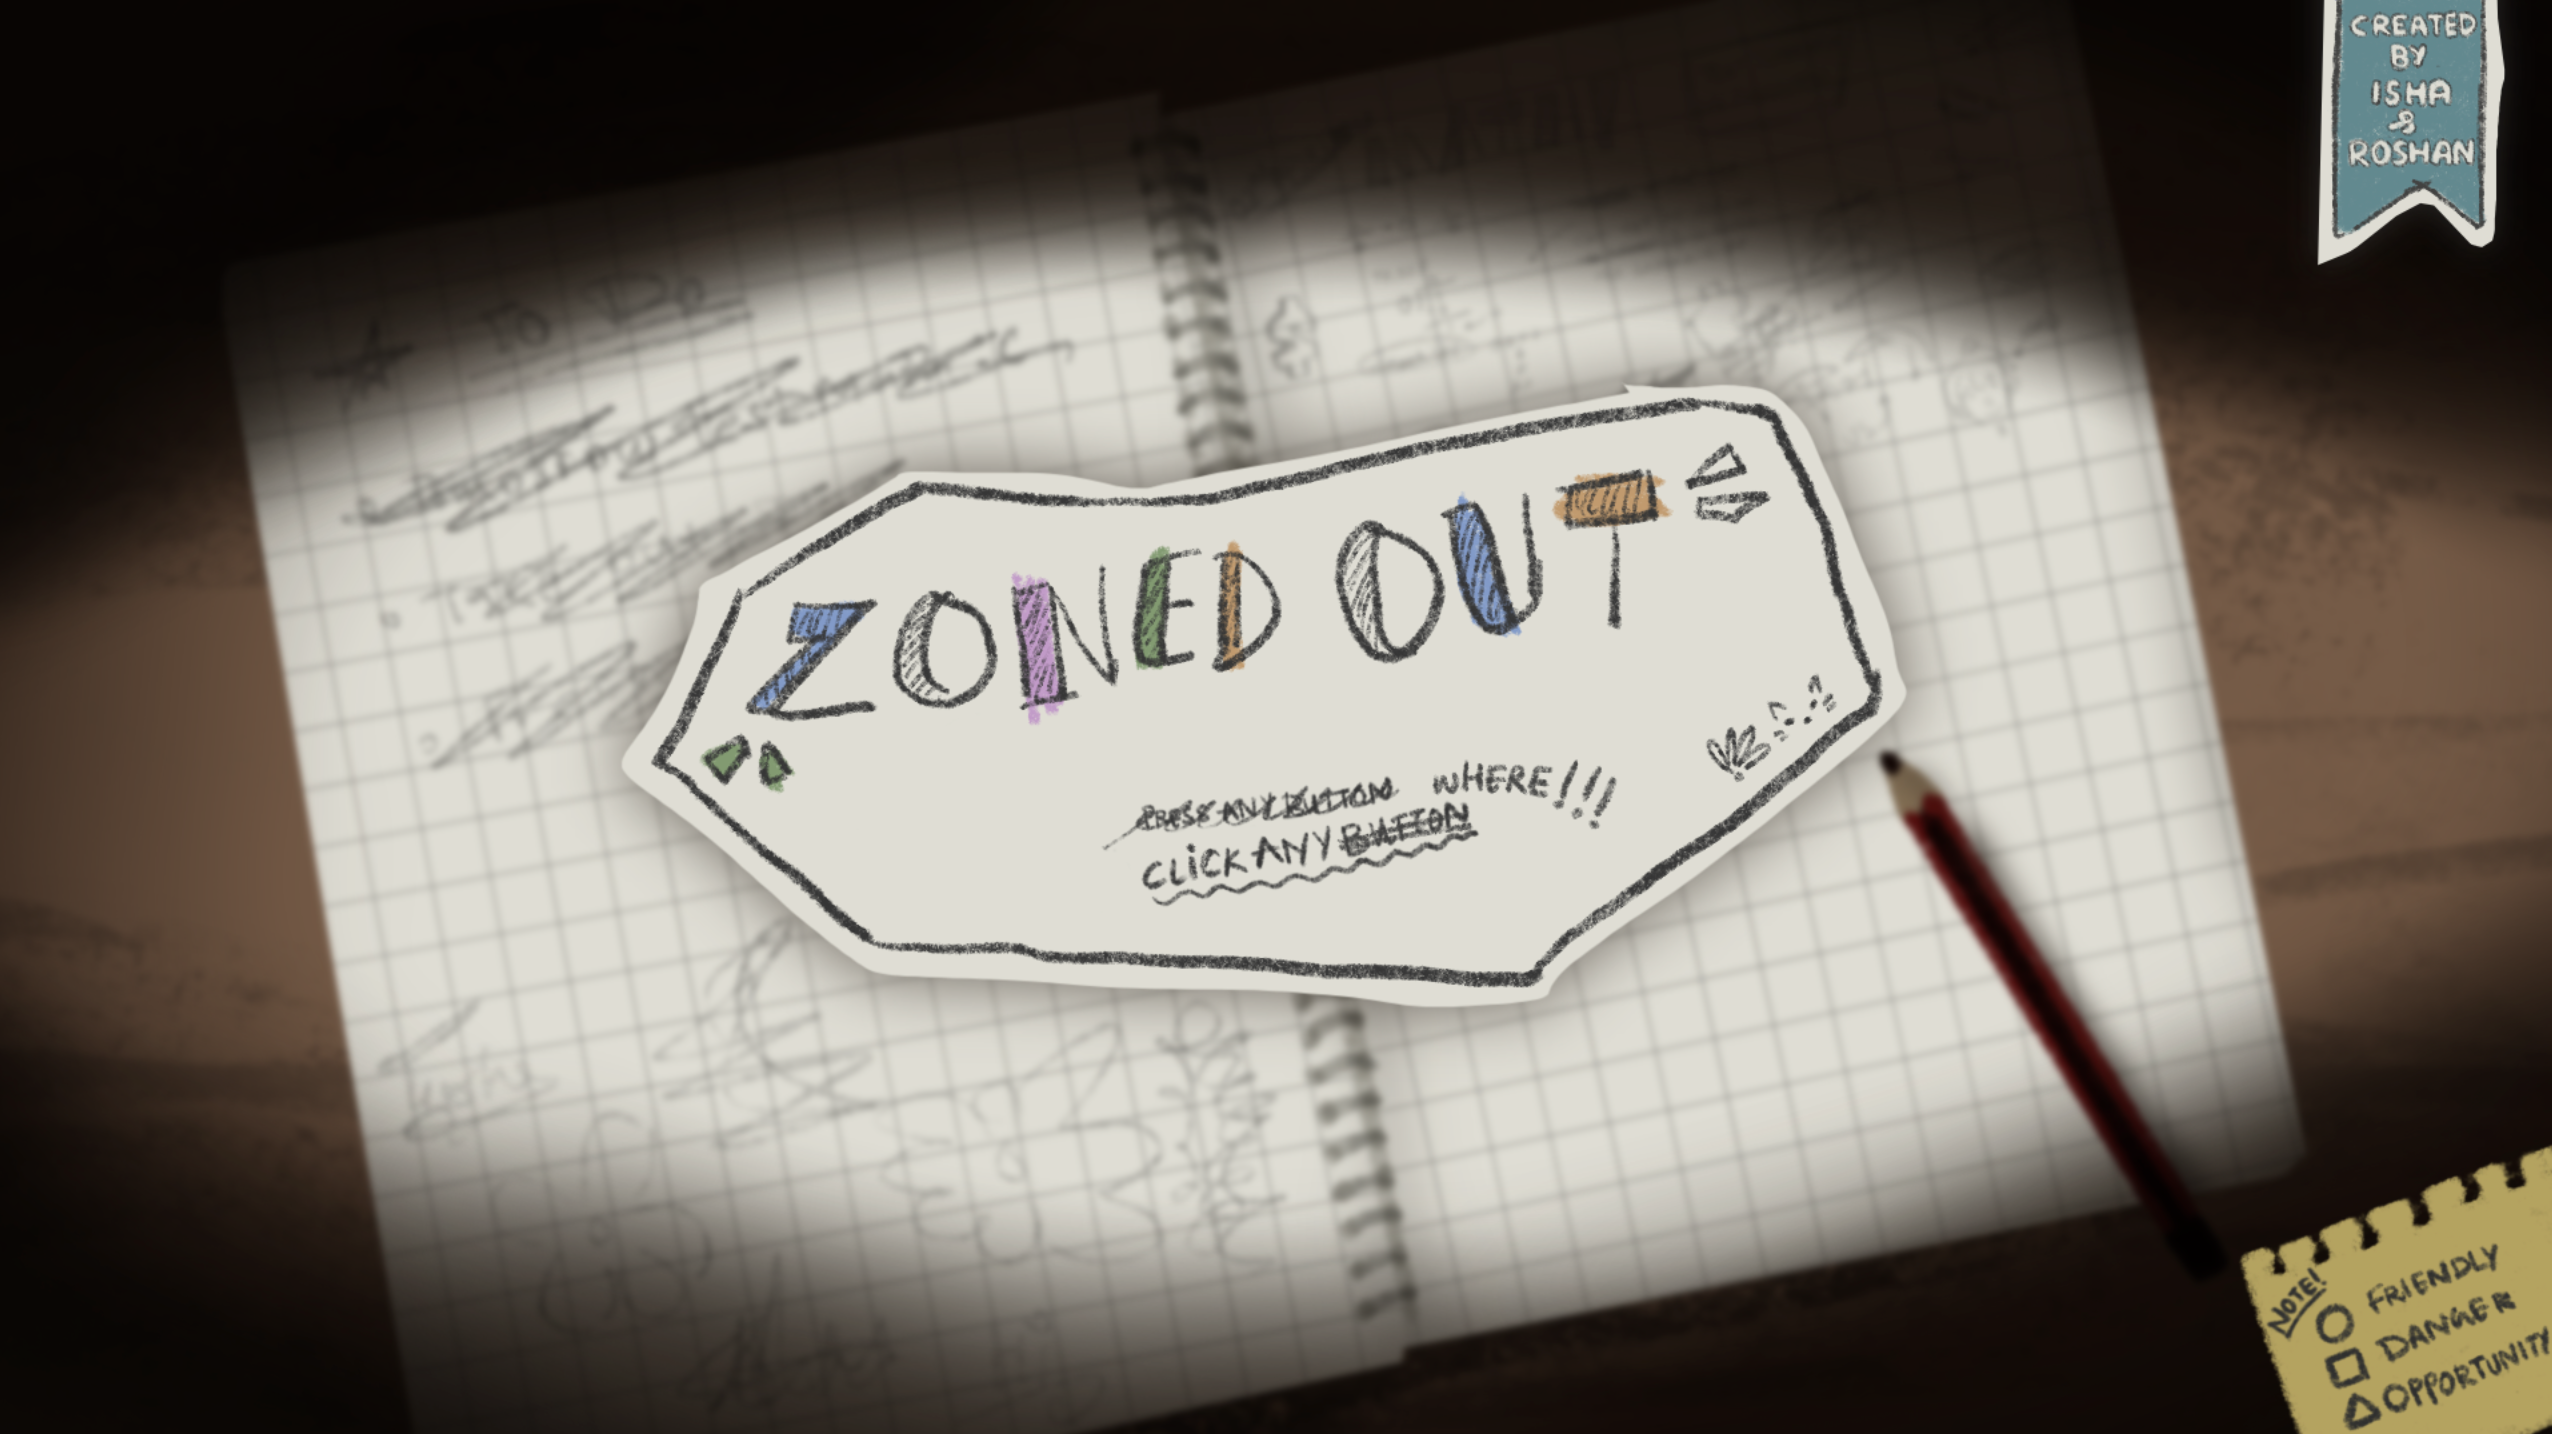 CREATED
BY
ISHA
&
ROSHAN
TO DO
ZONED OUT
PRESS ANY BUTTON WHERE!!!
CLICK ANY BUTTON
NOTE!
FRIENDLY
DANGER
OPPORTUNITY